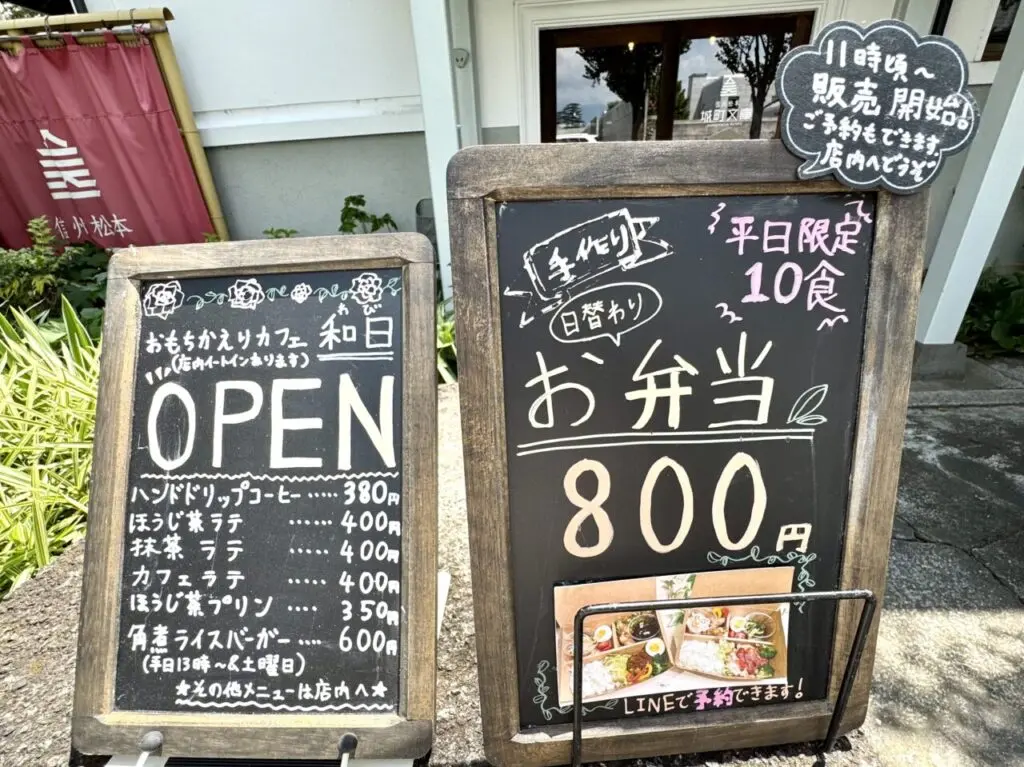 信州松本
城町文庫
おもちかえりカフェ 和日
わび
(店内イートインあります)
OPEN
ハンドドリップコーヒー ..... 380円
ほうじ茶ラテ ...... 400円
抹茶 ラテ ...... 400円
カフェ ラテ ...... 400円
ほうじ茶プリン .... 350円
角煮ライスバーガー .... 600円
(平日13時〜&土曜日)
★その他メニューは店内へ★
11時頃〜
販売開始!
ご予約もできます。
店内へどうぞ
平日限定
10食
手作り
日替わり
お弁当
800円
LINEで予約できます!